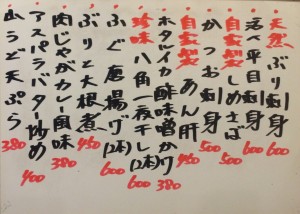 天然ぶり刺身 600
活〆平目刺身 600
自家製しめさば 500
かつお刺身 500
自家製あん肝 450
ホタルイカ酢味噌かけ 380
珍味八角一夜干し(2本) 600
ふぐ唐揚げ(2本) 600
ぶりと大根煮 450
肉じゃがカレー風味 380
アスパラバター炒め 400
山うど天ぷら 380